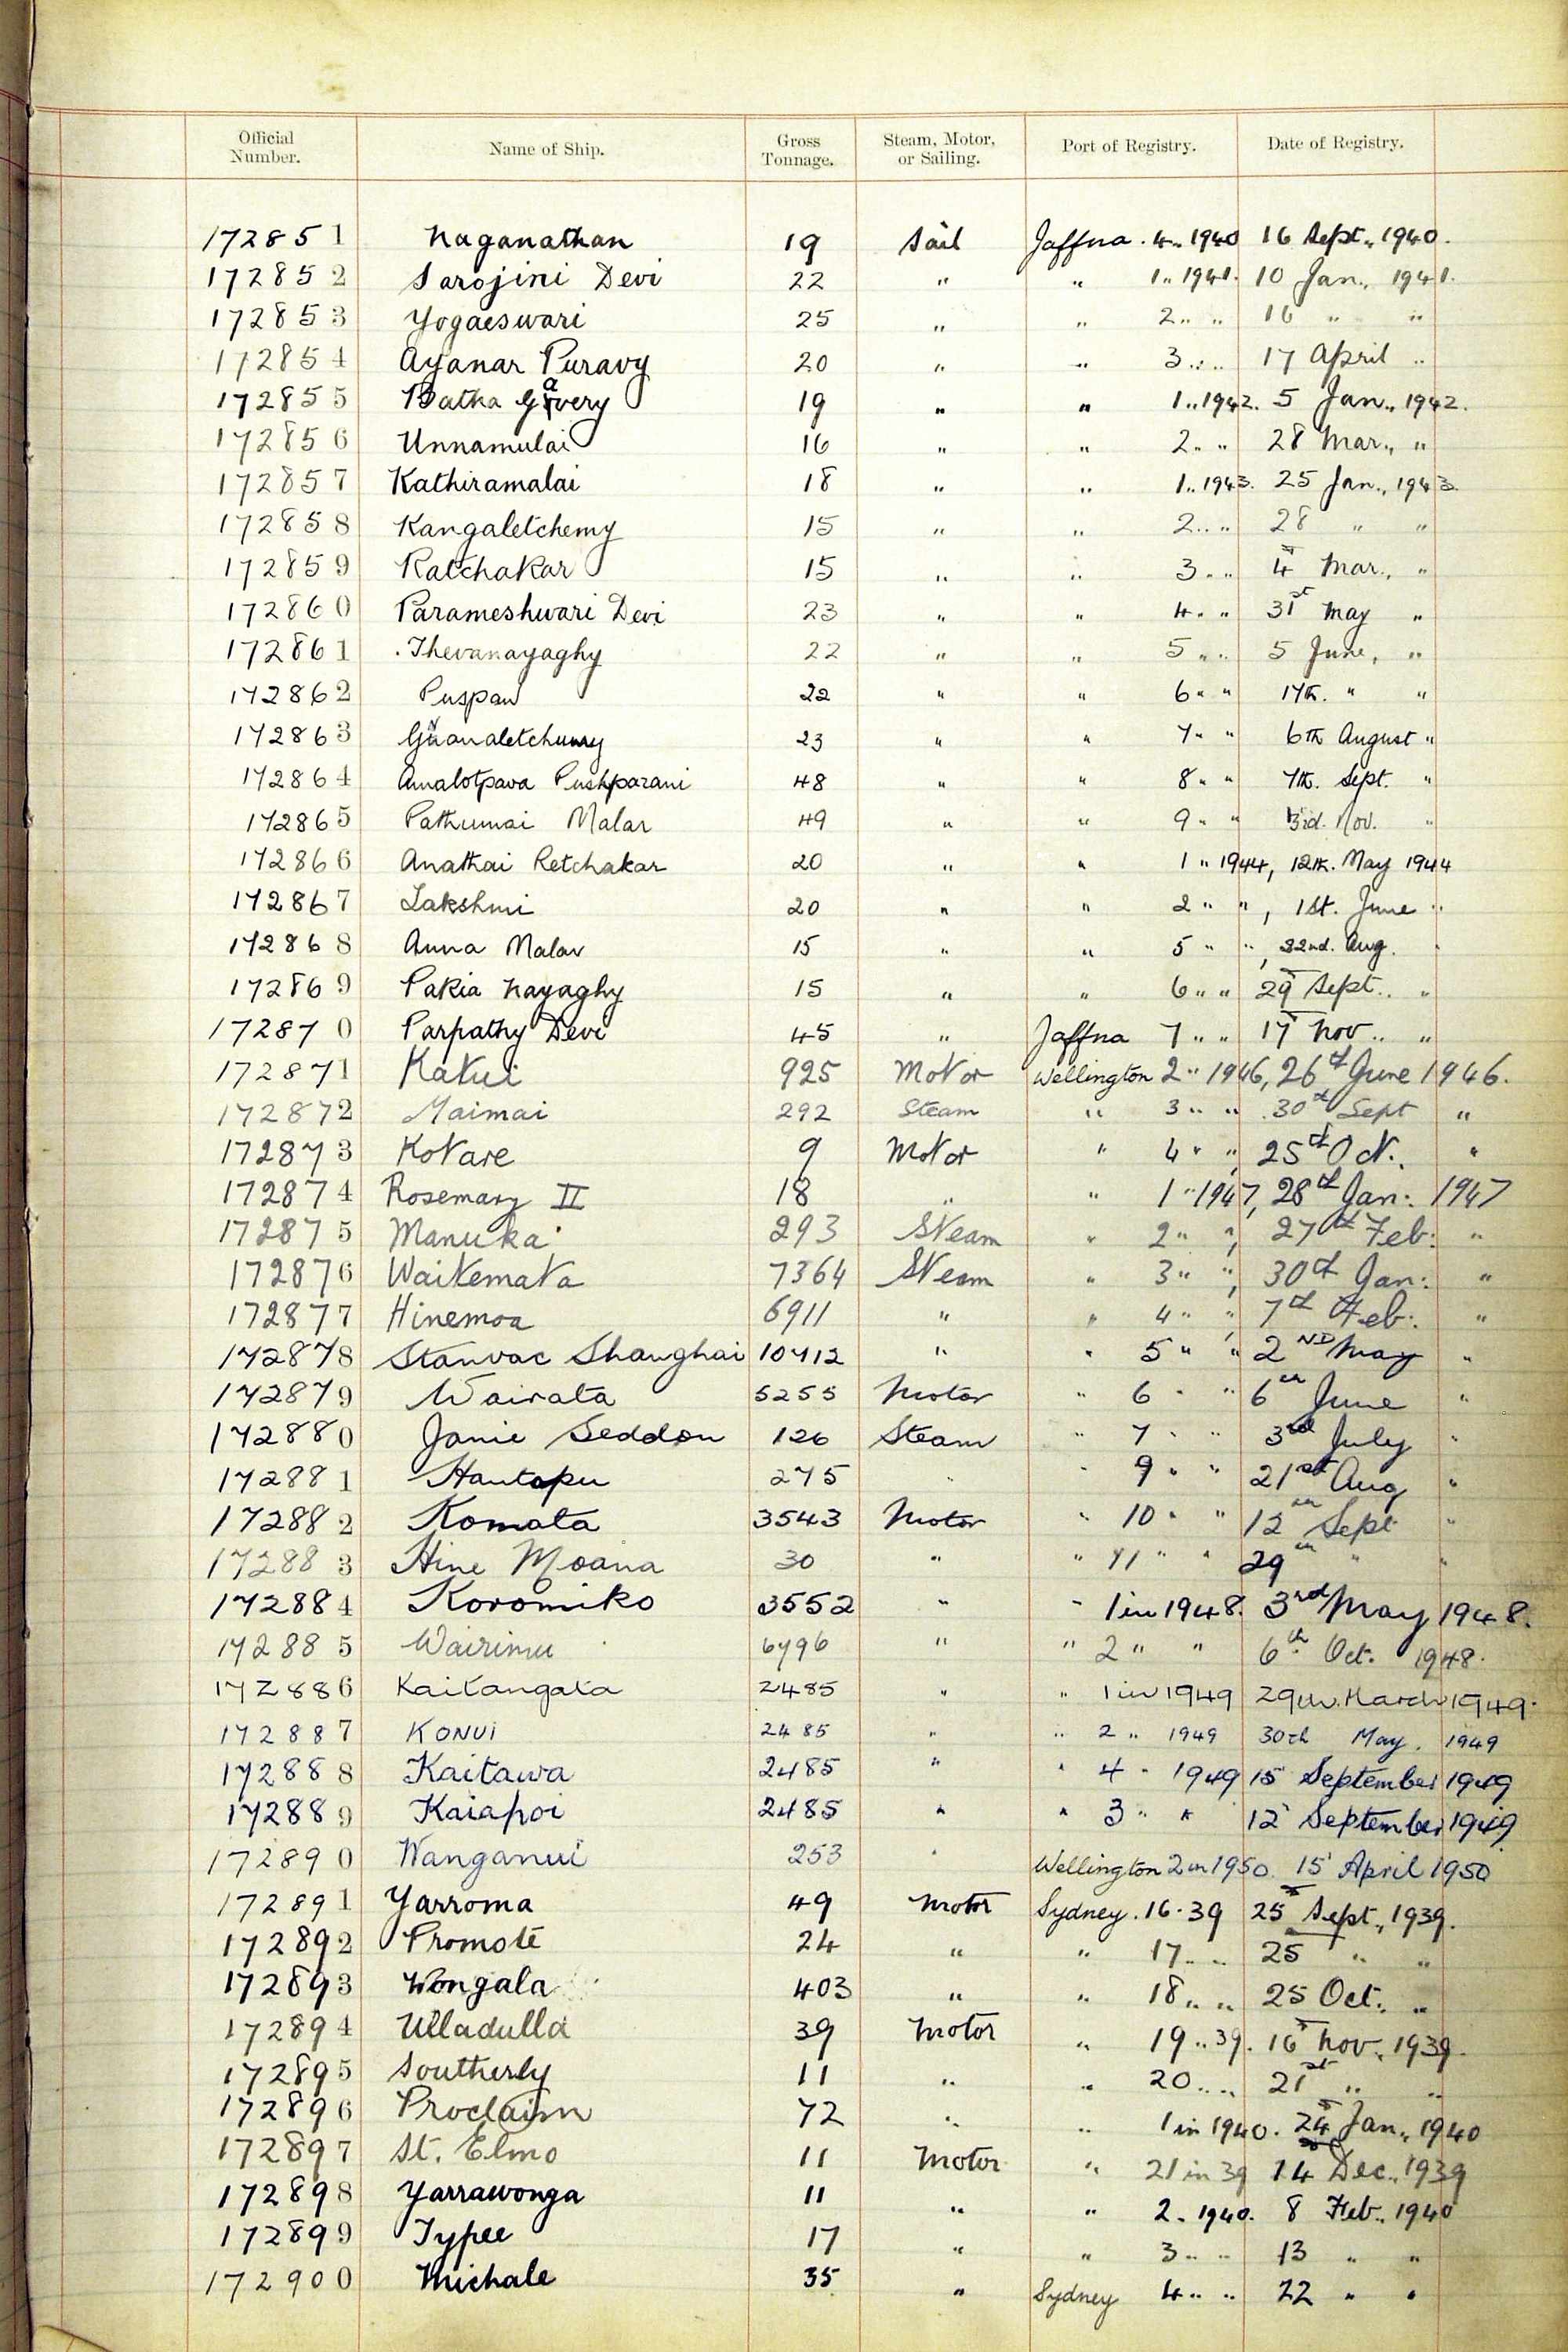 Official Number. Name of Ship. Gross Tonnage. Steam, Motor, or Sailing. Port of Registry. Date of Registry.
172851 Naganathan 19 Sail Jaffna . 4 „ 1940 16 Sept., 1940.
172852 Sarojini Devi 22 „ „ 1 „ 1941. 10 Jan., 1941.
172853 Yogaeswari 25 „ „ 2 „ „ 16 „ „
172854 Ayanar Puravy 20 „ „ 3 „ „ 17 April „
172855 Batha Gavery 19 „ „ 1 „ 1942. 5 Jan., 1942.
172856 Unnamulai 16 „ „ 2 „ „ 28 Mar., „
172857 Kathiramalai 18 „ „ 1 „ 1943. 25 Jan., 1943.
172858 Kangaletchemy 15 „ „ 2 „ „ 28 „ „
172859 Ratchakar 15 „ „ 3 „ „ 4 Mar., „
172860 Parameshwari Devi 23 „ „ 4 „ „ 31st May „
172861 Thevanayaghy 22 „ „ 5 „ „ 5 June, „
172862 Puspam 22 „ „ 6 „ „ 17th. „ „
172863 Gnanaletchumy 23 „ „ 7 „ „ 6th August „
172864 Amalotpava Pushparani 48 „ „ 8 „ „ 7th. Sept. „
172865 Pathumai Malar 49 „ „ 9 „ „ 3rd. Nov. „
172866 Anathai Retchakar 20 „ „ 1 „ 1944, 12th. May 1944
172867 Lakshmi 20 „ „ 2 „ „ , 1st. June „
172868 Anna Malar 15 „ „ 5 „ „ , 22nd. Aug. „
172869 Pakia Nayaghy 15 „ „ 6 „ „ 29 Sept. „
172870 Parpathy Devi 45 „ Jaffna 7 „ „ 17 Nov. „
172871 Katui 925 Motor Wellington 2 „ 1946, 26th June 1946.
172872 Maimai 292 Steam „ 3 „ „ 30th Sept „
172873 Kotare 9 Motor „ 4 „ „ 25th Oct. „
172874 Rosemary II 18 „ „ 1 „ 1947, 28th Jan: 1947
172875 Manuka 293 Steam „ 2 „ „, 27th Feb: „
172876 Waitemata 7364 Steam „ 3 „ „, 30th Jan: „
172877 Hinemoa 6911 „ „ 4 „ „, 7th Feb: „
172878 Stanvac Shanghai 10712 „ „ 5 „ „ 2ND May „
172879 Wairata 5255 Motor „ 6 „ „ 6th June „
172880 Janie Seddon 126 Steam „ 7 „ „ 3rd July „
172881 Hautapu 275 „ „ 9 „ „ 21st Aug „
172882 Komata 3543 Motor „ 10 „ „ 12th Sept „
172883 Hine Moana 30 „ „ 11 „ „ 29th „ „
172884 Koromiko 3552 „ „ 1 in 1948. 3rd May 1948.
172885 Wairimu 6796 „ „ 2 „ „ 6th Oct. 1948.
172886 Kaitangata 2485 „ „ 1 in 1949 29th. March 1949.
172887 KONUI 2485 „ „ 2 „ 1949 30th May. 1949
172888 Kaitawa 2485 „ „ 4 „ 1949 15 September 1949
172889 Kaiapoi 2485 „ „ 3 „ „ 12 September 1949
172890 Wanganui 253 „ Wellington 2 in 1950. 15 April 1950
172891 Yarroma 49 Motor Sydney. 16 . 39 25 Sept., 1939.
172892 Promote 24 „ „ 17 „ „ 25 „ „
172893 Wongala 403 „ „ 18 „ „ 25 Oct. „
172894 Ulladulla 39 Motor „ 19 „ 39. 16 Nov., 1939.
172895 Southerly 11 „ „ 20 „ „ 21st „ „
172896 Proclaim 72 „ „ 1 in 1940. 24 Jan., 1940
172897 St. Elmo 11 Motor „ 21 in 39 14 Dec., 1939
172898 Yarrawonga 11 „ „ 2 „ 1940. 8 Feb., 1940
172899 Typee 17 „ „ 3 „ „ 13 „ „
172900 Michale 35 „ Sydney 4 „ „ 22 „ „